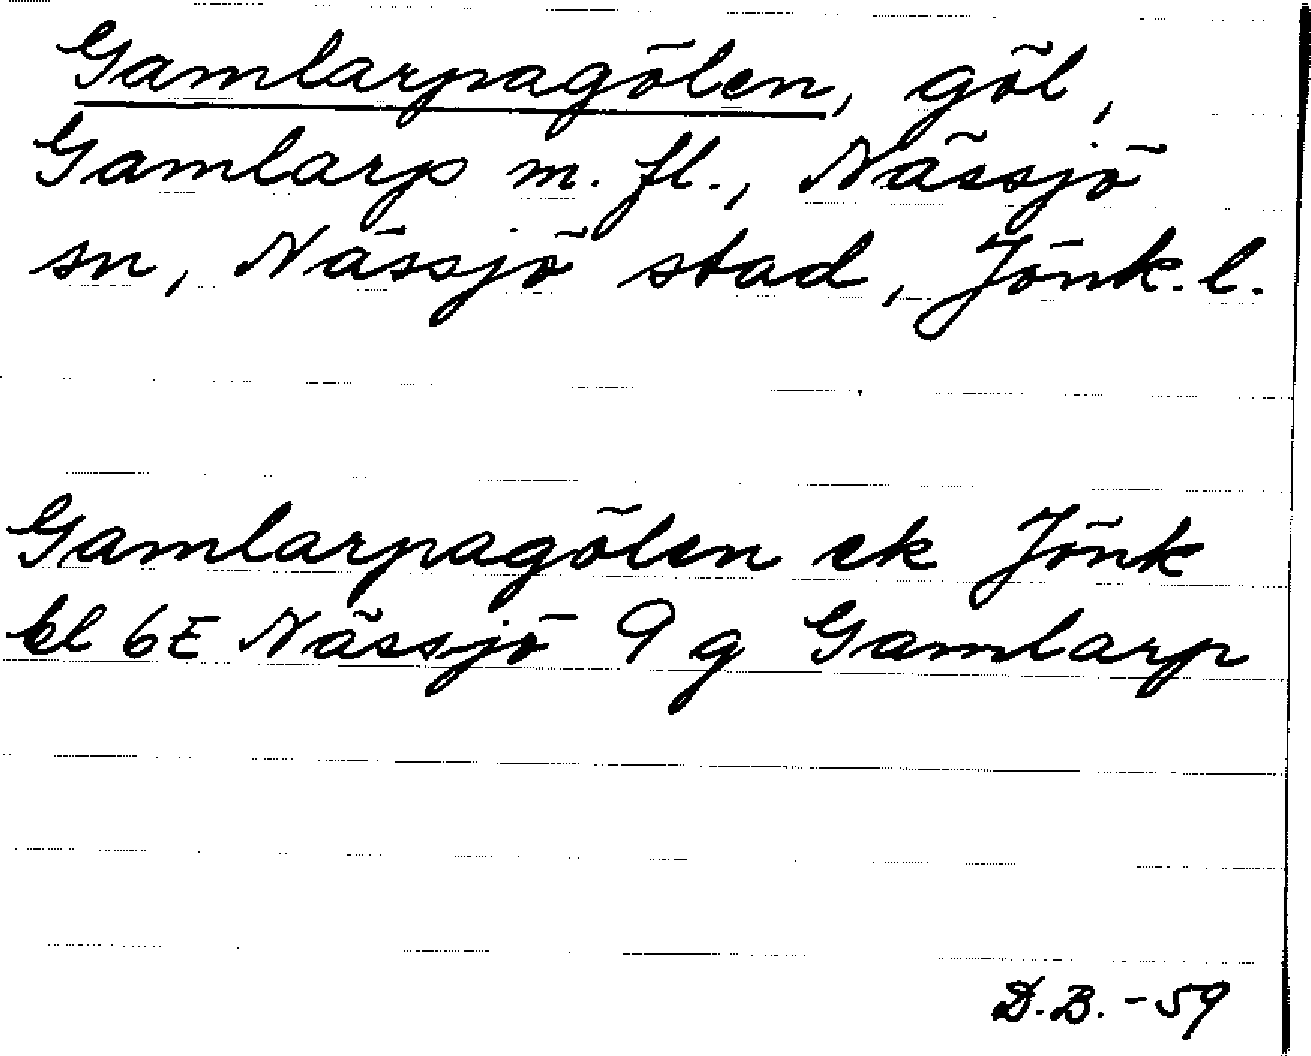 Gamlarpagölen, göl,
Gamlarp m. fl., Nässjö
sn, Nässjö stad, Jönk. l.
Gamlarpagölen ek Jönk
bl 6E Nässjö 9 g Gamlarp
D.B. -59